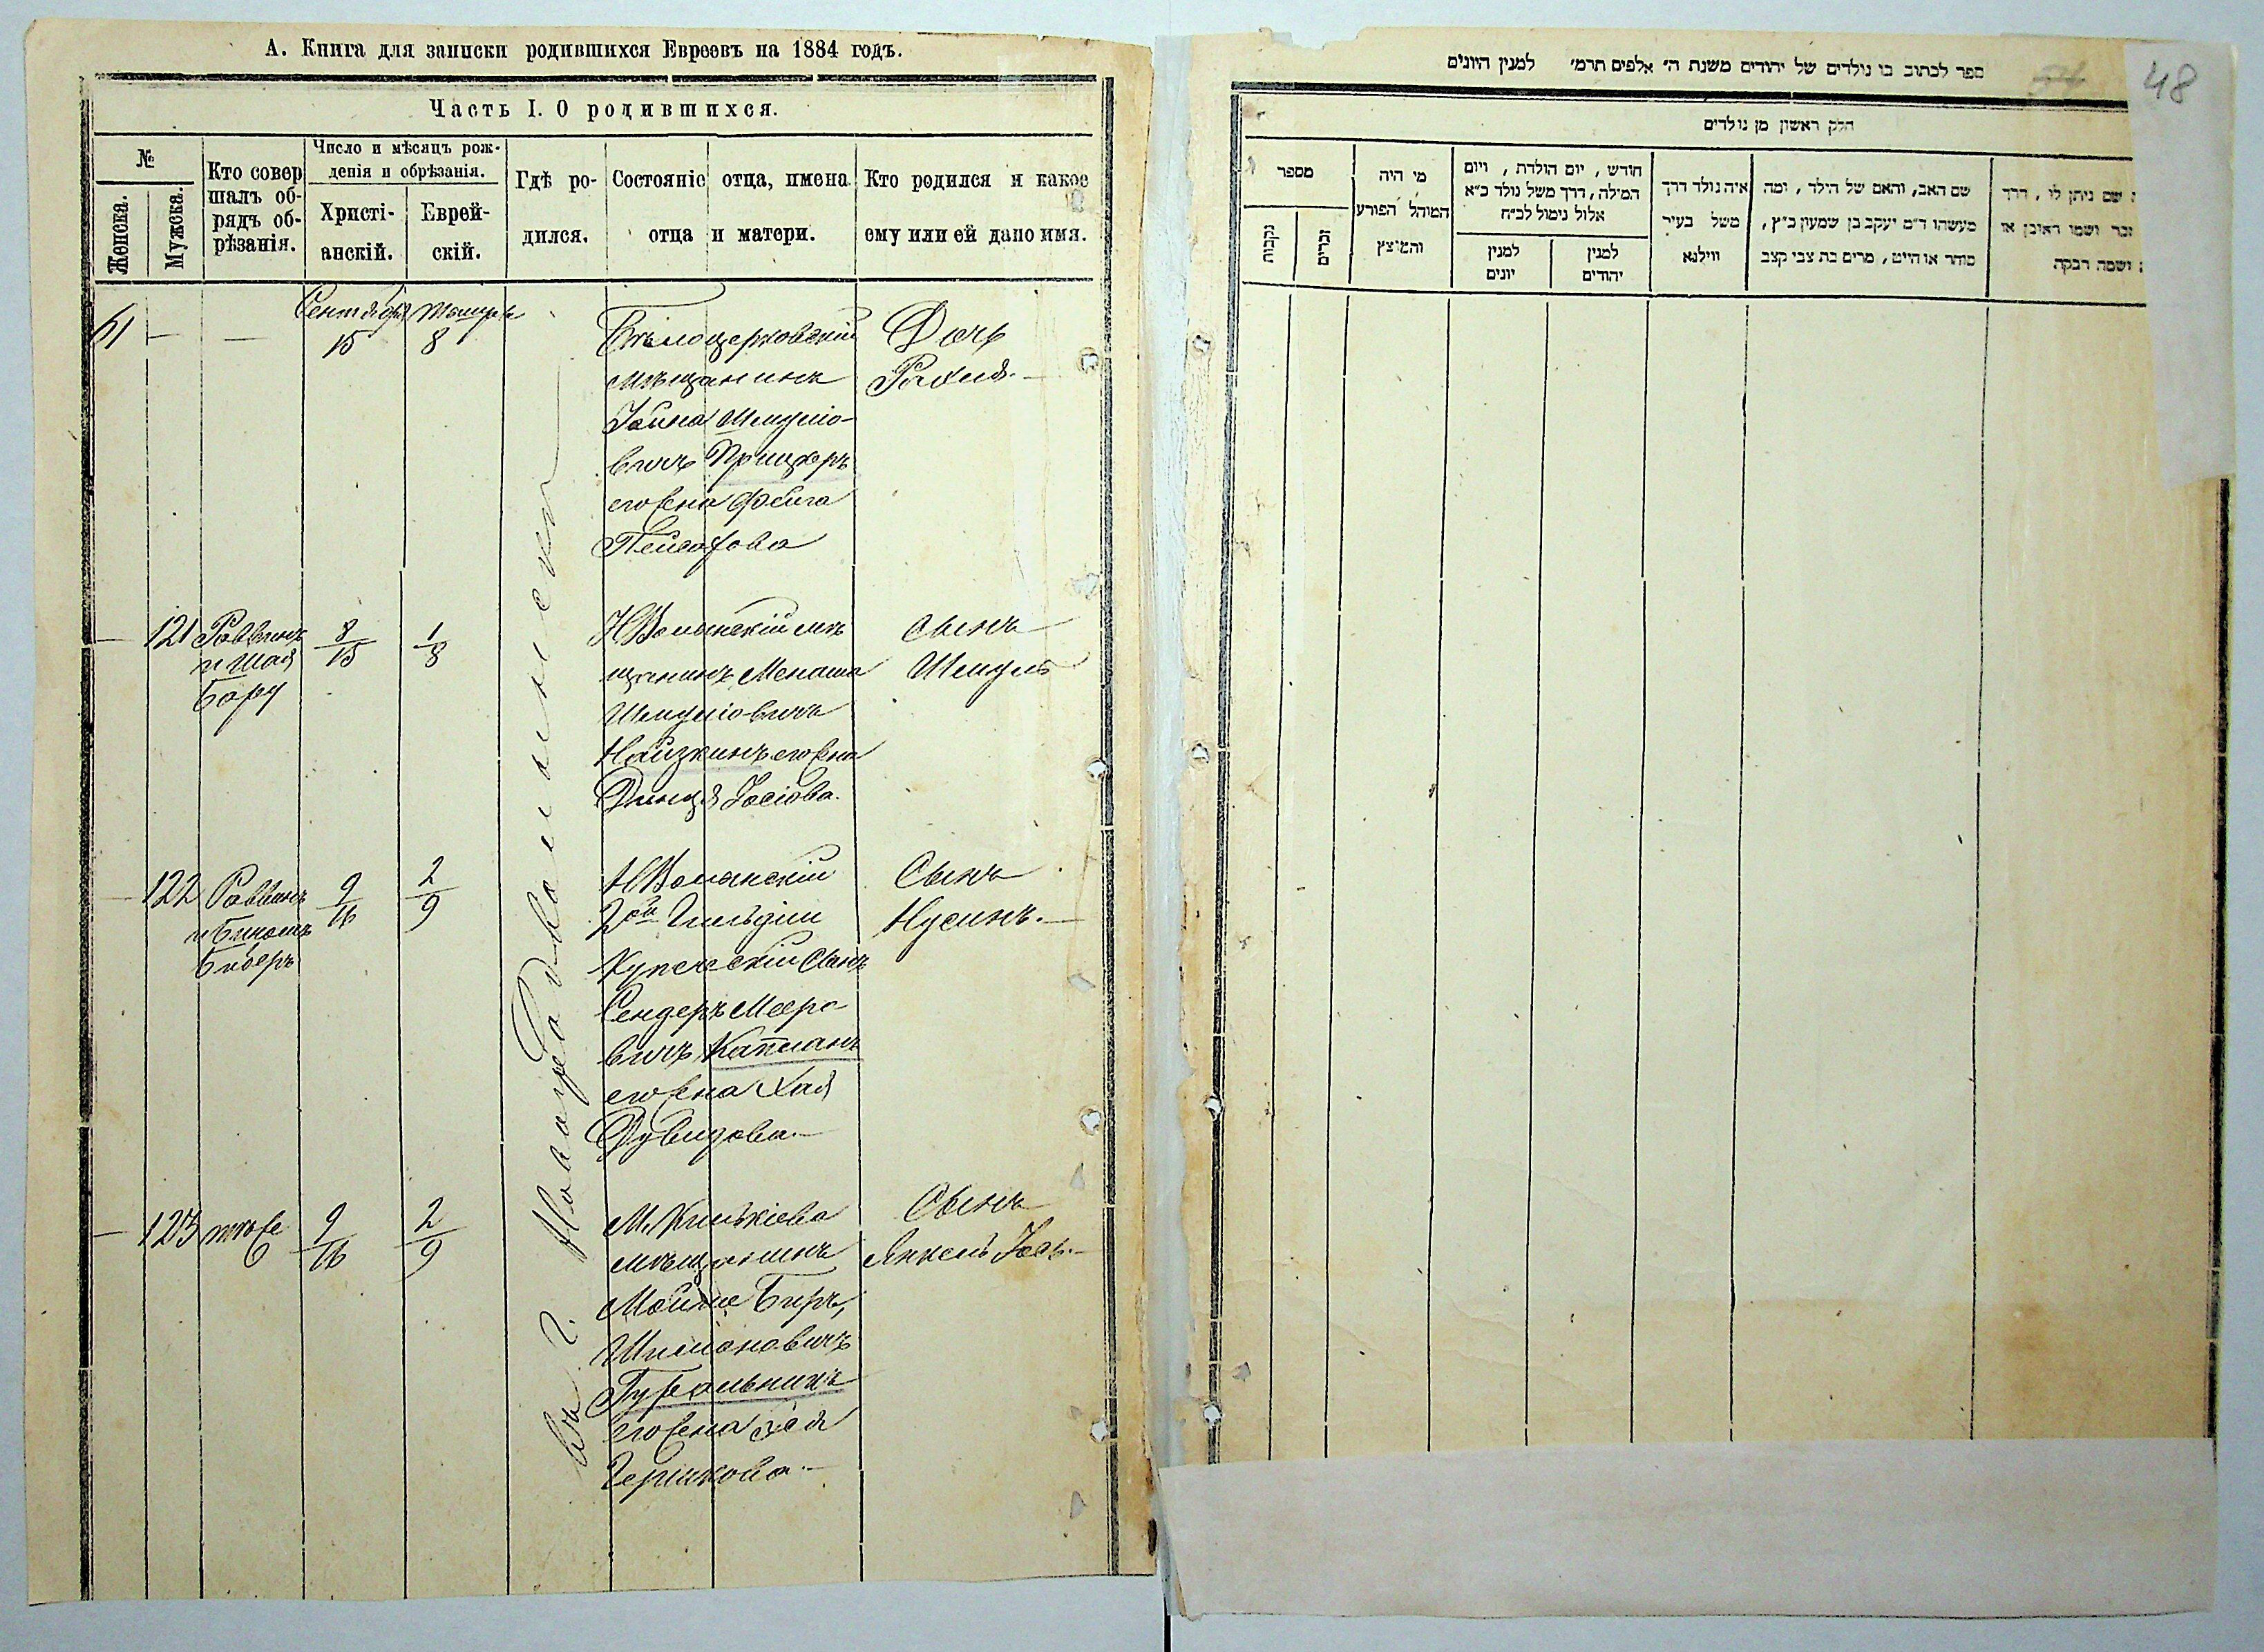 А. Книга для записки родившихся Евреевъ на 1884 годъ.
Часть I. О родившихся.
№
Женска.
Мужска.
Кто совер
шалъ об-
рядъ об-
рѣзанія.
Число и мѣсяцъ рож-
денія и обрѣзанія.
Христі-
анскій.
Еврей-
скій.
Гдѣ ро-
дился.
Состояніе отца, имена
отца и матери.
Кто родился и какое
ему или ей дано имя.
61 — —
Сентября Тишри
15 8
Бѣлоцерковскій
мѣщанинъ
Іойна Шмуліо-
вичъ Прицкеръ
его жена Фейга
Пейсахова
Дочь
Рахля.—
— 121 Раввинъ
и Шая
Бару
8/15 1/8
НВолынскій мѣ
щанинъ Менаша
Шмуліовичъ
Найзкинъ его жена
Динця Іосіова.
Сынъ
Шмуль
— 122 Раввинъ
и Биномъ
Биберъ
9/16 2/9
НВолынскій
2ой Гильдіи
Купеческій Сынъ
Сендеръ Мееро-
вичъ Капланъ
его жена Хая
Дувидова.—
Сынъ
Нусинъ.—
— 123 тѣже
9/16 2/9
мѣщанинъ
Мойше Беръ,
Шимоновичъ
Гуральникъ
его жена Хая
Гершкова.—
Сынъ
Янкель Іось.—
въ г. Новоградволынске
ספר לכתוב בו נולדים של יהודים משנת ה׳ אלפים תרמ׳ למנין היונים
48
חלק ראשון מן נולדים
מספר
נקבות
זכרים
מי היה
המוהל הפורע
והמוצץ
חודש, יום הולדת, ויום
המילה, דרך משל נולד כ״א
אלול נימול לכ״ח
למנין
יונים
למנין
יהודים
איה נולד דרך
משל בעיר
ווילנא
שם האב, והאם של הילד, ומה
מעשהו ד״מ יעקב בן שמעון כ״ץ,
סוחר או חייט, מרים בת צבי קצב
שם ניתן לו, דרך
זכר ושמו ראובן או
ושמה רבקה